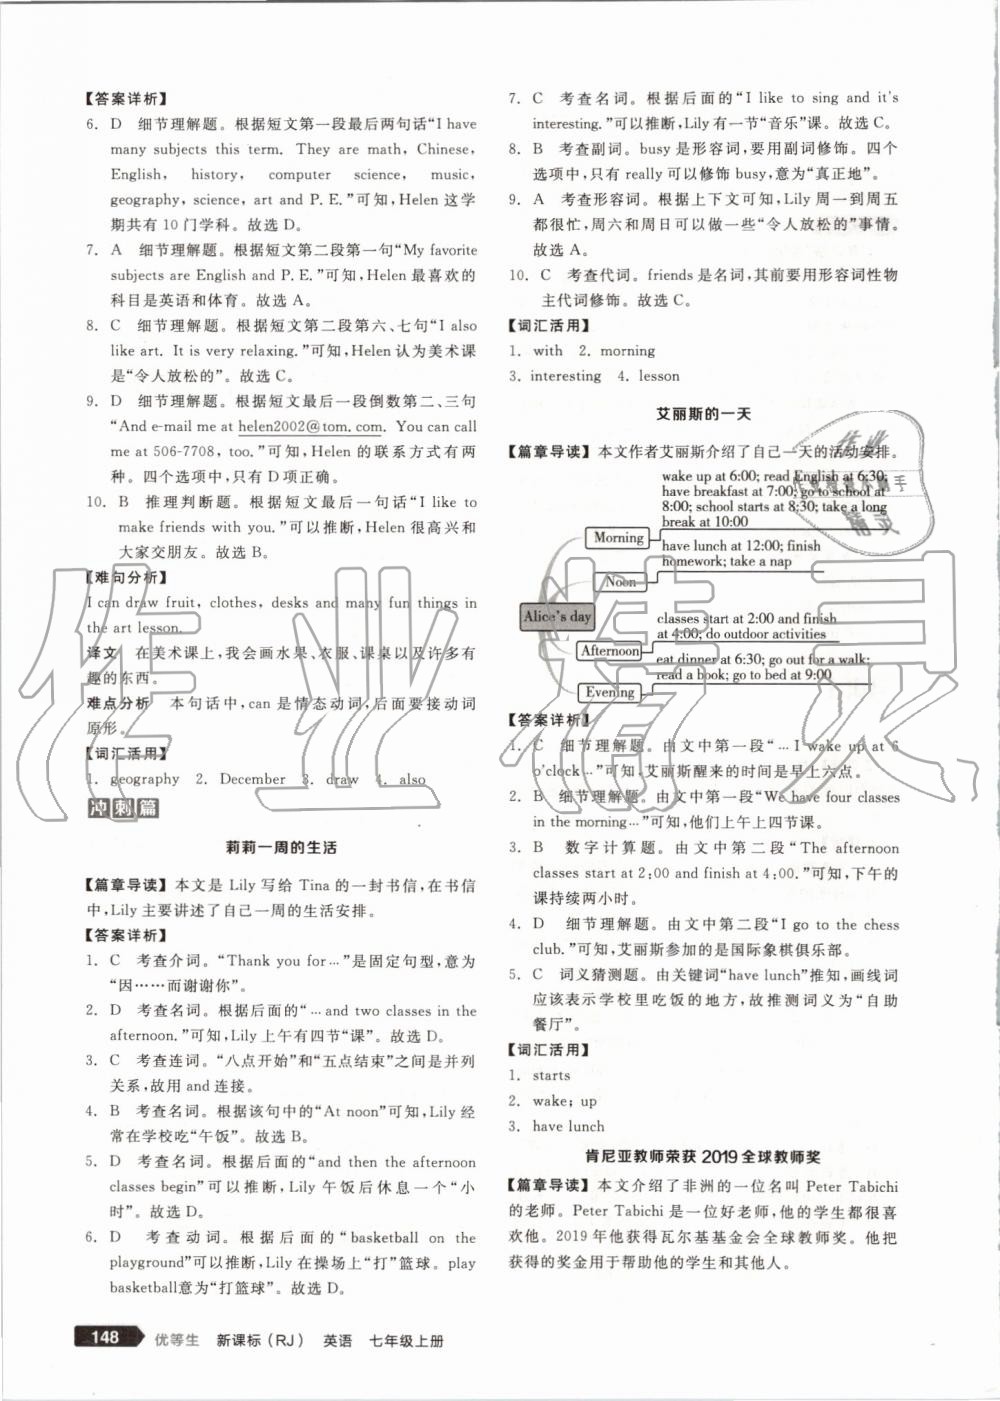 【答案详析】
6. D 细节理解题。根据短文第一段最后两句话“I have
many subjects this term. They are math, Chinese,
English, history, computer science, music,
geography, science, art and P. E.”可知,Helen 这学
期共有 10 门学科。故选 D。
7. A 细节理解题。根据短文第二段第一句“My favorite
subjects are English and P. E.”可知,Helen 最喜欢的
科目是英语和体育。故选 A。
8. C 细节理解题。根据短文第二段第六、七句“I also
like art. It is very relaxing.”可知,Helen 认为美术课
是“令人放松的”。故选 C。
9. D 细节理解题。根据短文最后一段倒数第二、三句
“And e-mail me at helen2002@tom. com. You can call
me at 506-7708, too.”可知,Helen 的联系方式有两
种。四个选项中,只有 D 项正确。
10. B 推理判断题。根据短文最后一句话“I like to
make friends with you.”可以推断,Helen 很高兴和
大家交朋友。故选 B。
【难句分析】
I can draw fruit, clothes, desks and many fun things in
the art lesson.
译文 在美术课上,我会画水果、衣服、课桌以及许多有
趣的东西。
难点分析 本句话中,can 是情态动词,后面要接动词
原形。
【词汇活用】
1. geography 2. December 3. draw 4. also
冲刺篇
莉莉一周的生活
【篇章导读】本文是 Lily 写给 Tina 的一封书信,在书信
中,Lily 主要讲述了自己一周的生活安排。
【答案详析】
1. C 考查介词。“Thank you for…”是固定句型,意为
“因……而谢谢你”。
2. D 考查名词。根据后面的“…and two classes in the
afternoon.”可知,Lily 上午有四节“课”。故选 D。
3. C 考查连词。“八点开始”和“五点结束”之间是并列
关系,故用 and 连接。
4. B 考查名词。根据该句中的“At noon”可知,Lily 经
常在学校吃“午饭”。故选 B。
5. D 考查名词。根据后面的“and then the afternoon
classes begin”可以推断,Lily 午饭后休息一个“小
时”。故选 D。
6. D 考查动词。根据后面的“basketball on the
playground”可以推断,Lily 在操场上“打”篮球。play
basketball意为“打篮球”。故选 D。
7. C 考查名词。根据后面的“I like to sing and it's
interesting.”可以推断,Lily 有一节“音乐”课。故选 C。
8. B 考查副词。busy 是形容词,要用副词修饰。四个
选项中,只有 really 可以修饰 busy,意为“真正地”。
9. A 考查形容词。根据上下文可知,Lily 周一到周五
都很忙,周六和周日可以做一些“令人放松的”事情。
故选 A。
10. C 考查代词。friends 是名词,其前要用形容词性物
主代词修饰。故选 C。
【词汇活用】
1. with 2. morning
3. interesting 4. lesson
艾丽斯的一天
【篇章导读】本文作者艾丽斯介绍了自己一天的活动安排。
wake up at 6:00; read English at 6:30;
have breakfast at 7:00; go to school at
8:00; school starts at 8:30; take a long
break at 10:00
Morning
have lunch at 12:00; finish
homework; take a nap
Noon
Alice's day
classes start at 2:00 and finish
at 4:00; do outdoor activities
Afternoon
eat dinner at 6:30; go out for a walk;
read a book; go to bed at 9:00
Evening
【答案详析】
1. C 细节理解题。由文中第一段“…I wake up at 6
o'clock…”可知,艾丽斯醒来的时间是早上六点。
2. B 细节理解题。由文中第一段“We have four classes
in the morning…”可知,他们上午上四节课。
3. B 数字计算题。由文中第二段“The afternoon
classes start at 2:00 and finish at 4:00.”可知,下午的
课持续两小时。
4. D 细节理解题。由文中第二段“I go to the chess
club.”可知,艾丽斯参加的是国际象棋俱乐部。
5. C 词义猜测题。由关键词“have lunch”推知,画线词
应该表示学校里吃饭的地方,故推测词义为“自助
餐厅”。
【词汇活用】
1. starts
2. wake; up
3. have lunch
肯尼亚教师荣获 2019 全球教师奖
【篇章导读】本文介绍了非洲的一位名叫 Peter Tabichi
的老师。Peter Tabichi 是一位好老师,他的学生都很喜
欢他。2019 年他获得瓦尔基基金会全球教师奖。他把
获得的奖金用于帮助他的学生和其他人。
148 优等生 新课标(RJ) 英语 七年级上册
作业精灵